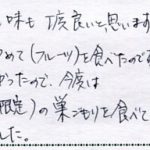 味も丁度良いと思います
めて(フルーツ)を食べたのです
かったので、今度は
限定)の巣ごもりを食べて
した。